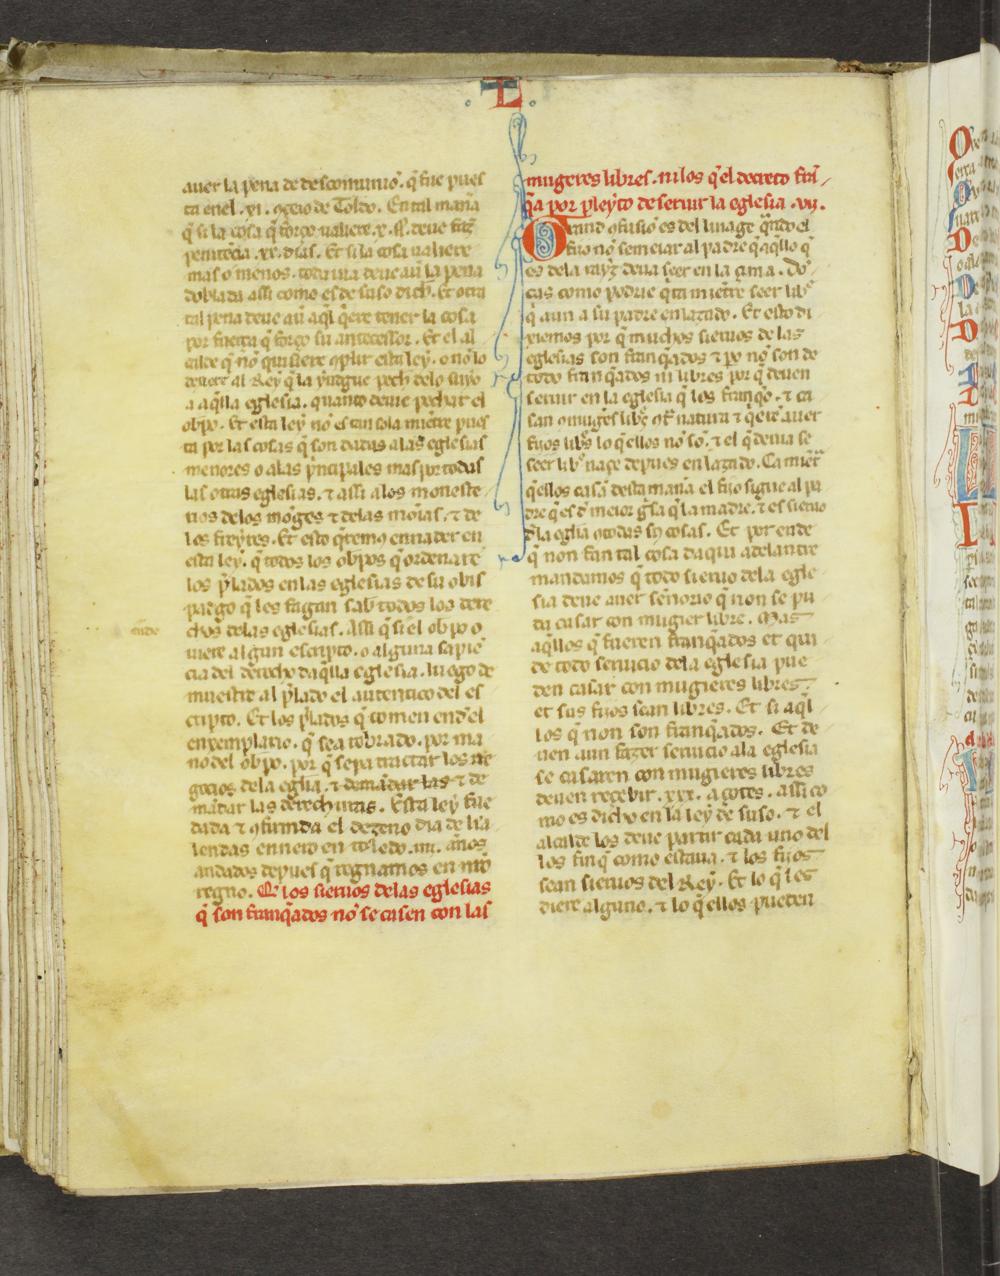 L
auer la pena de descomunió. q̃ fue pues
ta enel .xi. ꝯçeio de Toldo. En tal maña
q̃ si la cosa q̃ forço ualiere .x. ss. deue faz̃
penitẽcia .xx. dias. Et si la cosa ualiere
mas o menos. toda uia deue au̾ la pena
doblada assi como es de suso dich̃. Et otra
tal pena deue au̾ aq̃l q̃ q̃re tener la cosa
por fuerça q̃ forço su anteçessor. Et el al
calde q̃ nõ quisiere ꝯplir esta ley. o nõ lo
al Rey q̃ la pech̃ delo suyo
a aq̃lla eglesia. quanto deue pechar el
obp̃o. Et esta ley nõ es tan sola miẽtre pues
ta por las cosas q̃ son dadas alas eglesias
menores o alas p̃nçipales mas por todas
las otras eglesias. ⁊ assi alos moneste
rios delos mõges ⁊ delas mõias. ⁊ de
los freyres. Et esto q̃remꝯ ennader en
esta ley. q̃ todos los obp̃os q̃ ordenarẽ
los p̃lados en las eglesias de su obis
pado q̃ les fagan sab̾ todos los dere
chos delas eglesias. Assi q̃ si el obp̃o o
uiere algun escripto. o alguna sapiẽ
cia del derecho daq̃lla eglesia. luego de
muestre al p̃lado el autentico del es
cripto. Et los p̃lados q̃ tomen end̾el
enxemplario. q̃ sea robrado. por ma
no del obp̃o. por q̃ sepa tractar los ne
goçios dela eglia. ⁊ demãdar las ⁊ de
mãdar las derechuras. Esta ley fue
dada ⁊ ꝯfirmda el dezeno dia de ka
lendas enneio en toledo .iiii. años
andados depues q̃ regnamos en nr̃o
regno. Q̃ los sieruos delas eglesias
q̃ son franq̃ados nõ se casen con las
ende
mugeres libres. ni los q̃ el decreto frã
q̃a por pleyto de seruir la eglesia .vii.
Grand ꝯfusiõ es del linage q̃ndo el
fijo nõ semeiar al padre q̃ aq̃llo q̃
es dela rayz deua seer en la çima. Do
cas como podrie q̃ta miẽtre seer libº
q̃ aun a su padre en lazado. Et esto di
xiemos por q̃ muchos sieruos de las
eglesias son franq̃ados ⁊ po nõ son de
todo franq̃ados ni libres por q̃ deuen
seruir en la eglesia q̃ los franq̃o. ⁊ ca
san ꝯmuger̃s lib̃s ꝯt̃ natura ⁊ q̃erẽ auer
fijos lib̃s lo q̃ ellos nõ sõ. ⁊ el q̃ deuia se
seer libº naçe depues en lazado. Ca miẽt̃
q̃ellos casã desta mañ̃a el fijo sigue al pa
dre q̃ es d̾ meior g̃sa q̃ la madre. ⁊ es sieruo
d̾la eglia ꝯtodas sꝯ cosas. Et por ende
q̃ non fan tal cosa daqui adelantre
mandamos q̃ todo sieruo dela egle
sia deue auer señorio q̃ non se pu
da casar con mugier libre. Mas
aq̃llos q̃ fueren franq̃ados et qui
de todo seruicio dela eglesia pue
den casar con mugieres libres.
et sus fijos sean libres. Et si aq̃l
los q̃ non son franq̃ados. Et de
uen aun fazer seruicio ala eglesia
se casaren con mugieres libres
deuen reçebir .xxx. açotes. assi co
mo es dicho en la ley de suso. ⁊ el
alcalde los deue partir cada uno del
los finq̃ como estaua. ⁊ los fijos
sean sieruos del Rey. Et lo q̃ les
diere alguno. ⁊ lo q̃ ellos pueden